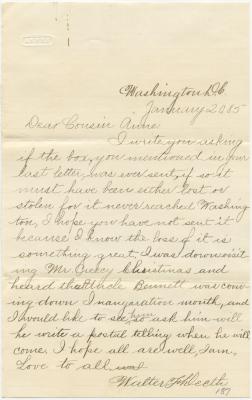 Washington D.C.
January 20 05
Dear Cousin Anne
I write you asking
if the box, you mentioned in your
last letter, was ever sent, if so it
must have been either lost or
stolen for it never reached Washing
ton, I hope you have not sent it
because I know the loss of it is
something great, I was down visit
ing Mr Christmas and
heard that Uncle Bennett was com
ing down Inauguration month, and
I would like to see him, so ask him will
he write a postal telling when he will
come, I hope all are well, I am,
Love to all
Walter